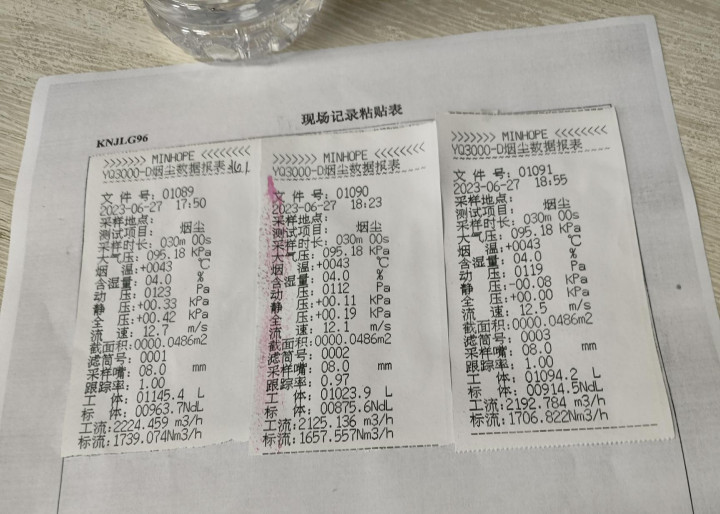 现场记录粘贴表
KNJLG96
>>>>>>> MINHOPE <<<<<<<<
YQ3000-D烟尘数据报表
文 件 号:01089
2023-06-27 17:50
采样地点:
测试项目: 烟尘
采样时长: 030m 00s
大气压: 095.18 kPa
烟 温:+0043 ℃
含湿量: 04.0 %
动 压: 0123 Pa
静 压:+00.33 kPa
全 压:+00.42 kPa
流 速: 12.7 m/s
截面积:0000.0486m2
滤筒号: 0001
采样嘴: 08.0 mm
跟踪率: 1.00
工 体: 01145.4 L
标 体: 00963.7NdL
工流:2224.459 m3/h
标流:1739.074Nm3/h
>>>>>>> MINHOPE <<<<<<<<
YQ3000-D烟尘数据报表
文 件 号: 01090
2023-06-27 18:23
采样地点:
测试项目: 烟尘
采样时长: 030m 00s
大气压: 095.18 kPa
烟 温:+0043 ℃
含湿量: 04.0 %
动 压: 0112 Pa
静 压:+00.11 kPa
全 压:+00.19 kPa
流 速: 12.1 m/s
截面积:0000.0486m2
滤筒号: 0002
采样嘴: 08.0 mm
跟踪率: 0.97
工 体: 01023.9 L
标 体: 00875.6NdL
工流:2125.136 m3/h
标流:1657.557Nm3/h
>>>>>>> MINHOPE <<<<<<<<
YQ3000-D烟尘数据报表
文 件 号: 01091
2023-06-27 18:55
采样地点:
测试项目: 烟尘
采样时长: 030m 00s
大气压: 095.18 kPa
烟 温:+0043 ℃
含湿量: 04.0 %
动 压: 0119 Pa
静 压:-00.08 kPa
全 压:+00.00 kPa
流 速: 12.5 m/s
截面积:0000.0486m2
滤筒号: 0003
采样嘴: 08.0 mm
跟踪率: 1.00
工 体: 01094.2 L
标 体: 00914.5NdL
工流:2192.784 m3/h
标流:1706.822Nm3/h